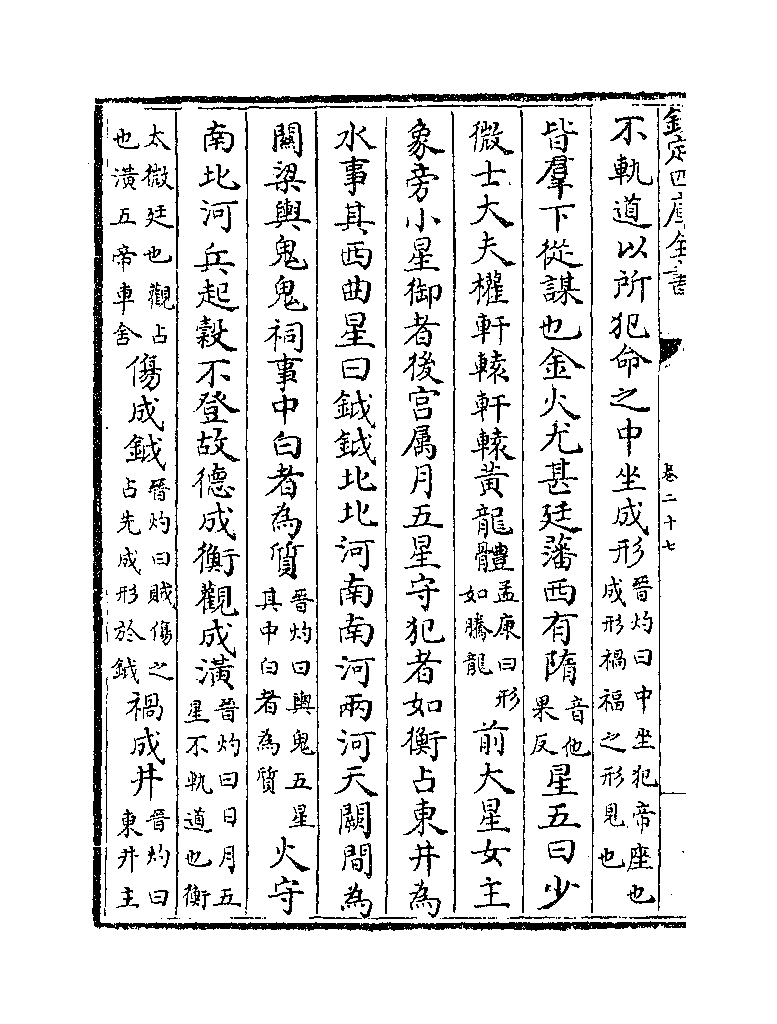 欽定四庫全書
卷二十七
不軌道以所犯命之中坐成形晉灼曰中坐犯帝座也成形禍福之形見也
皆羣下從謀也金火尤甚廷藩西有隋音他果反星五曰少
微士大夫權軒轅軒轅黃龍體孟康曰形如騰龍前大星女主
象旁小星御者後宫属月五星守犯者如衡占東井為
水事其西曲星曰鉞鉞北北河南南河兩河天闕間為
關梁輿鬼鬼祠事中白者為質晉灼曰輿鬼五星其中白者為質火守
南北河兵起穀不登故德成衡觀成潢晉灼曰日月五星不軌道也衡
太微廷也觀占也潢五帝車舍傷成鉞晉灼曰賊傷之占先成形於鉞禍成井晉灼曰東井主